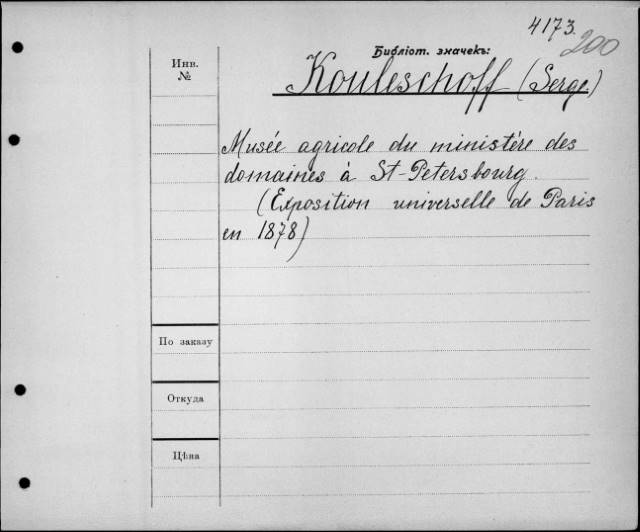 4173.
200
Библіот. значекъ:
Инв.
№
Kouleschoff (Serge)
Musée agricole du ministére des
domaines à St-Petersbourg.
(Exposition universelle de Paris
en 1878)
По заказу
Откуда
Цѣна